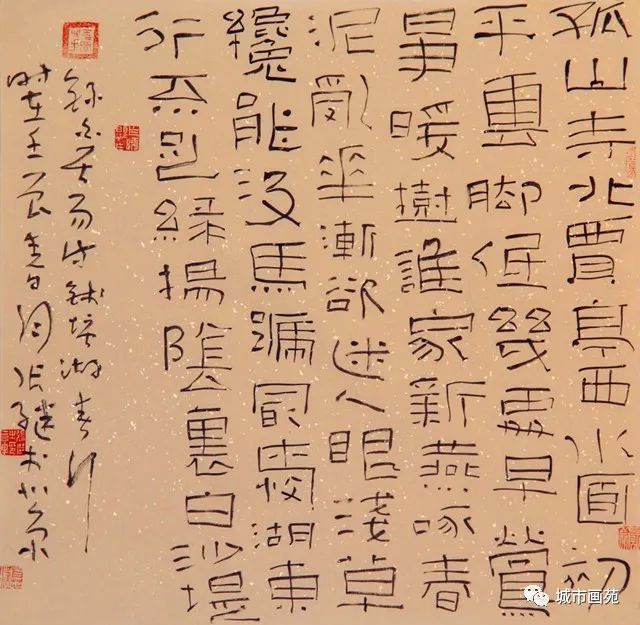 孤山寺北賈亭西水面初
平雲脚低幾處早鶯
爭暖樹誰家新燕啄春
泥亂華漸欲迷人眼淺草
纔能沒馬蹄最愛湖東
行不足綠楊陰裏白沙堤
錄白居易詩錢塘湖春行
時在壬辰張繼於北京
城市画苑